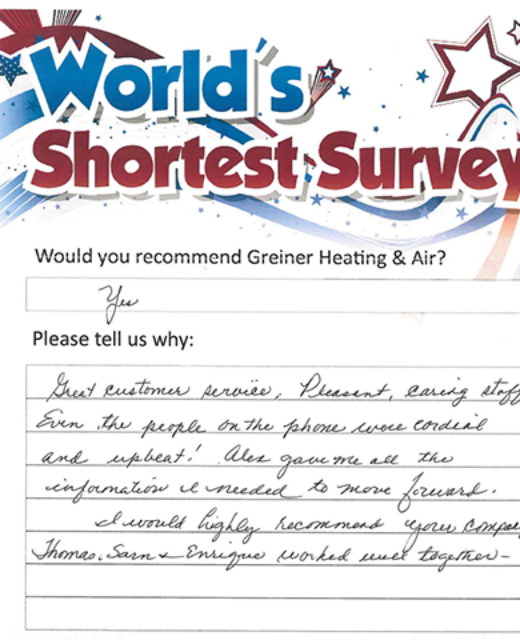 World's
Shortest Survey
Would you recommend Greiner Heating & Air?
Yes
Please tell us why:
Great customer service, Pleasant, caring staff
Even the people on the phone were cordial
and upbeat! Alex gave me all the
information I needed to move forward.
I would highly recommend your company
Thomas, Sam & Enrique worked well together-